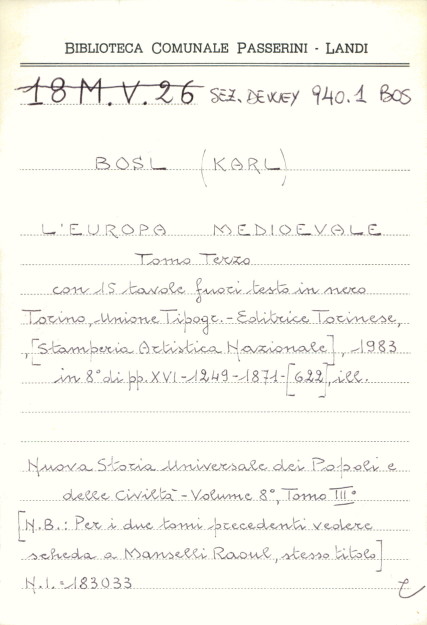 BIBLIOTECA COMUNALE PASSERINI - LANDI
18 M.V.26 SEZ. DEWEY 940.1 BOS
BOSL (KARL)
L'EUROPA MEDIOEVALE
Tomo Terzo
con 15 tavole fuori testo in nero
Torino, Unione Tipogr.-Editrice Torinese,
,[Stamperia Artistica Nazionale], 1983
in 8° di pp. XVI-1249-1871-[622], ill.
Nuova Storia Universale dei Popoli e
delle Civiltà - Volume 8°, Tomo III°
[N.B.: Per i due tomi precedenti vedere
scheda a Manselli Raoul, stesso titolo]
N.I. = 183033